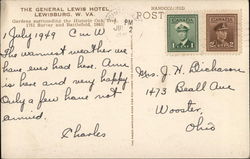 THE GENERAL LEWIS HOTEL
LEWISBURG, W. VA.
Gardens surrounding the Historic Oak, Trail,
1751 Survey and Battlefield.
HANDCOLORED
POST
PM
1 July 1949 C m W
The warmest weather we
have ever had here. Am
is here and very happy
Only a few have not
arrived.
Charles
Mrs. J. H. Dickason
1473 Beall Ave
Wooster,
Ohio